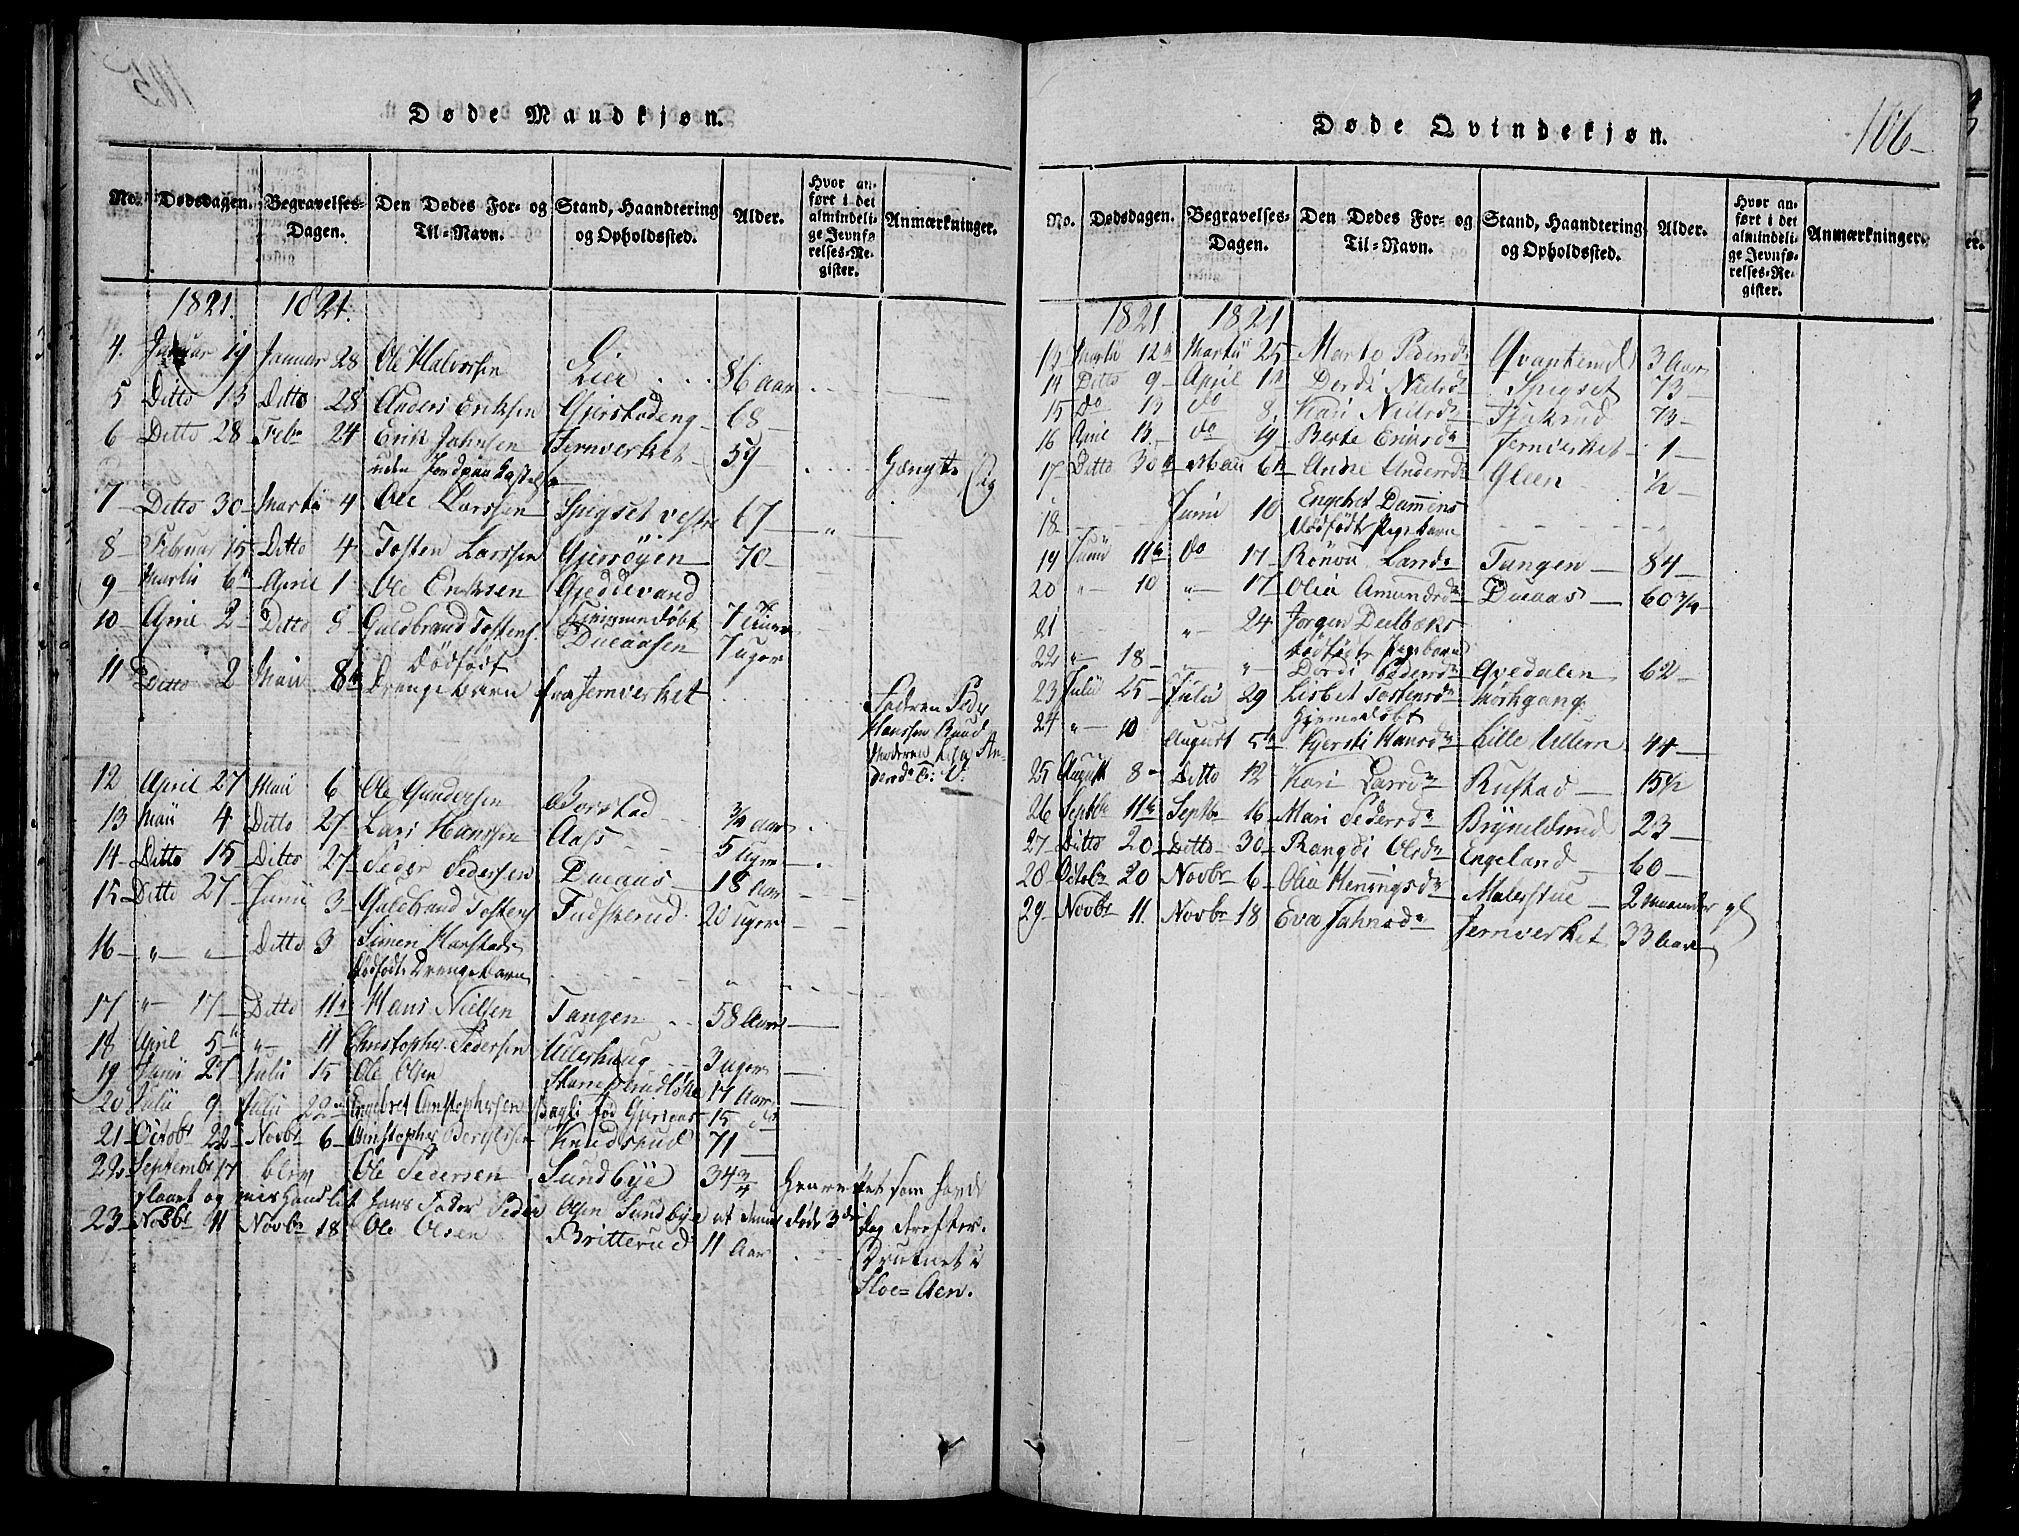 Døde Mandkjøn.
No. Dødsdagen. Begravelses-Dagen. Den Dødes For- og Til-Navn. Stand, Haandtering og Opholdssted. Alder. Hvor anført i det almindelige Jevnførelses-Register. Anmærkninger.
1821. 1821.
4. Januar 19 Januar 28 Ole Halvorsen Lier 86 Aar
5 Ditto 13 Ditto 28 Anders Eriksen Gjerstadeng 68
6 Ditto 28 Febr 24 Erik Jahnsen Jernverket 59 Hængte sig
uden Jordpaakastelse
7 Ditto 30 Marti 4 Ole Larssen Spigset vestre 67 "
8 Februar 15 Ditto 4 Tosten Larssen Gjerrøyen 70
9 Martii 6 April 1 Ole Eriksen Gjeddevand
10 April 2 Ditto 8 Guldbrand Tostens. Hjemmedøbt 7
Dueaasen 7 uger
11 Ditto 2 Maii 8 Dødfødt
Drengebarn fra Jernverket
Fadren Peder
Hanssen Ruud
Moderen
12 April 27 Maii 6 Ole Gundersen Borstad 3/4 Aar
13 Maii 4 Ditto 27 Lars Hanssen Aass 5 Uger
14 Ditto 15 Ditto 27 Peder Pedersen Dueaas 18 Aar
15 Ditto 27 Junii 3 Guldbrand Tostens Fudskerud 20 Uger
16 " " Ditto 3 Simen Harstads
Dødfødte Drengebarn "
17 " 17 Ditto 11 Hans Nielsen Tangen 58 Aar
18 April 5 " 11 Christopher Pedersen Ullerhaug 3 uger
19 Junii 27 Julii 15 Ole Olsen 17 Aar
20 Julii 9 Julii 22 Engebret Christophersen Bagli fød 15
21 Octobr 22 Novbr 6 Christopher Knudsrud 71
22 Septembr 17 Ole Pedersen Sundbye 34 3/4
slaaet og mishandlet hans Fader Peder Olsen Sundbye at denne døde 3de Dag derefter.
23 Novbr 11 Novbr 18 Ole Olsen Britterud 11 Aar
Druknet i
Sloe=Aen.
106
Døde Qvindekjøn.
No. Dødsdagen. Begravelses-Dagen. Den Dødes For- og Til-Navn. Stand, Haandtering og Opholdssted. Alder. Hvor anført i det almindelige Jevnførelses-Register. Anmærkninger.
1821 1821
13 Martii 12 Martii 25 Marte Pedersd 3 Aar
14 Ditto 9 April 1 Dordi Nielsd Spigset 73
15 Do 19 do 8 Kari Nielsd 73
16 April 13 do 19 Berte Jernverket 1
17 Ditto 30 Maii 6 Anne Andersd Gleen 1/2
18 Junii 10 Engebret Dammens
dødfødte Pigebarn
19 Junii 11 do 17 Rønou Tangen 84
20 " 10 " 17 Olia Amundsd Dueaas 60 3/4
21 " 24 Jørgen
dødfødte Pigebarn
22 " 18 " " Dordi Pedersd Qvedalen 62
23 Julii 25 Julii 29 Lisbet Tostensd Mørkgang
Hjemmedøbt
24 " 10 August 5 Kjersti Hansd Lille Ullern 44
25 August 8 Ditto 12 Kari Larsd Rustad 15 1/2
26 Septbr 11 Septbr 16 Mari Pedersd Bryneldsrud 23
27 Ditto 20 Ditto 30 Rangdi Olsd Engeland 60
28 Octobr 20 Novbr 6 Olia Henningsd Malerstue 2 maaneder
29 Novbr 11. Novbr 18 Eva Jahnsd Jernverket 33 Aar